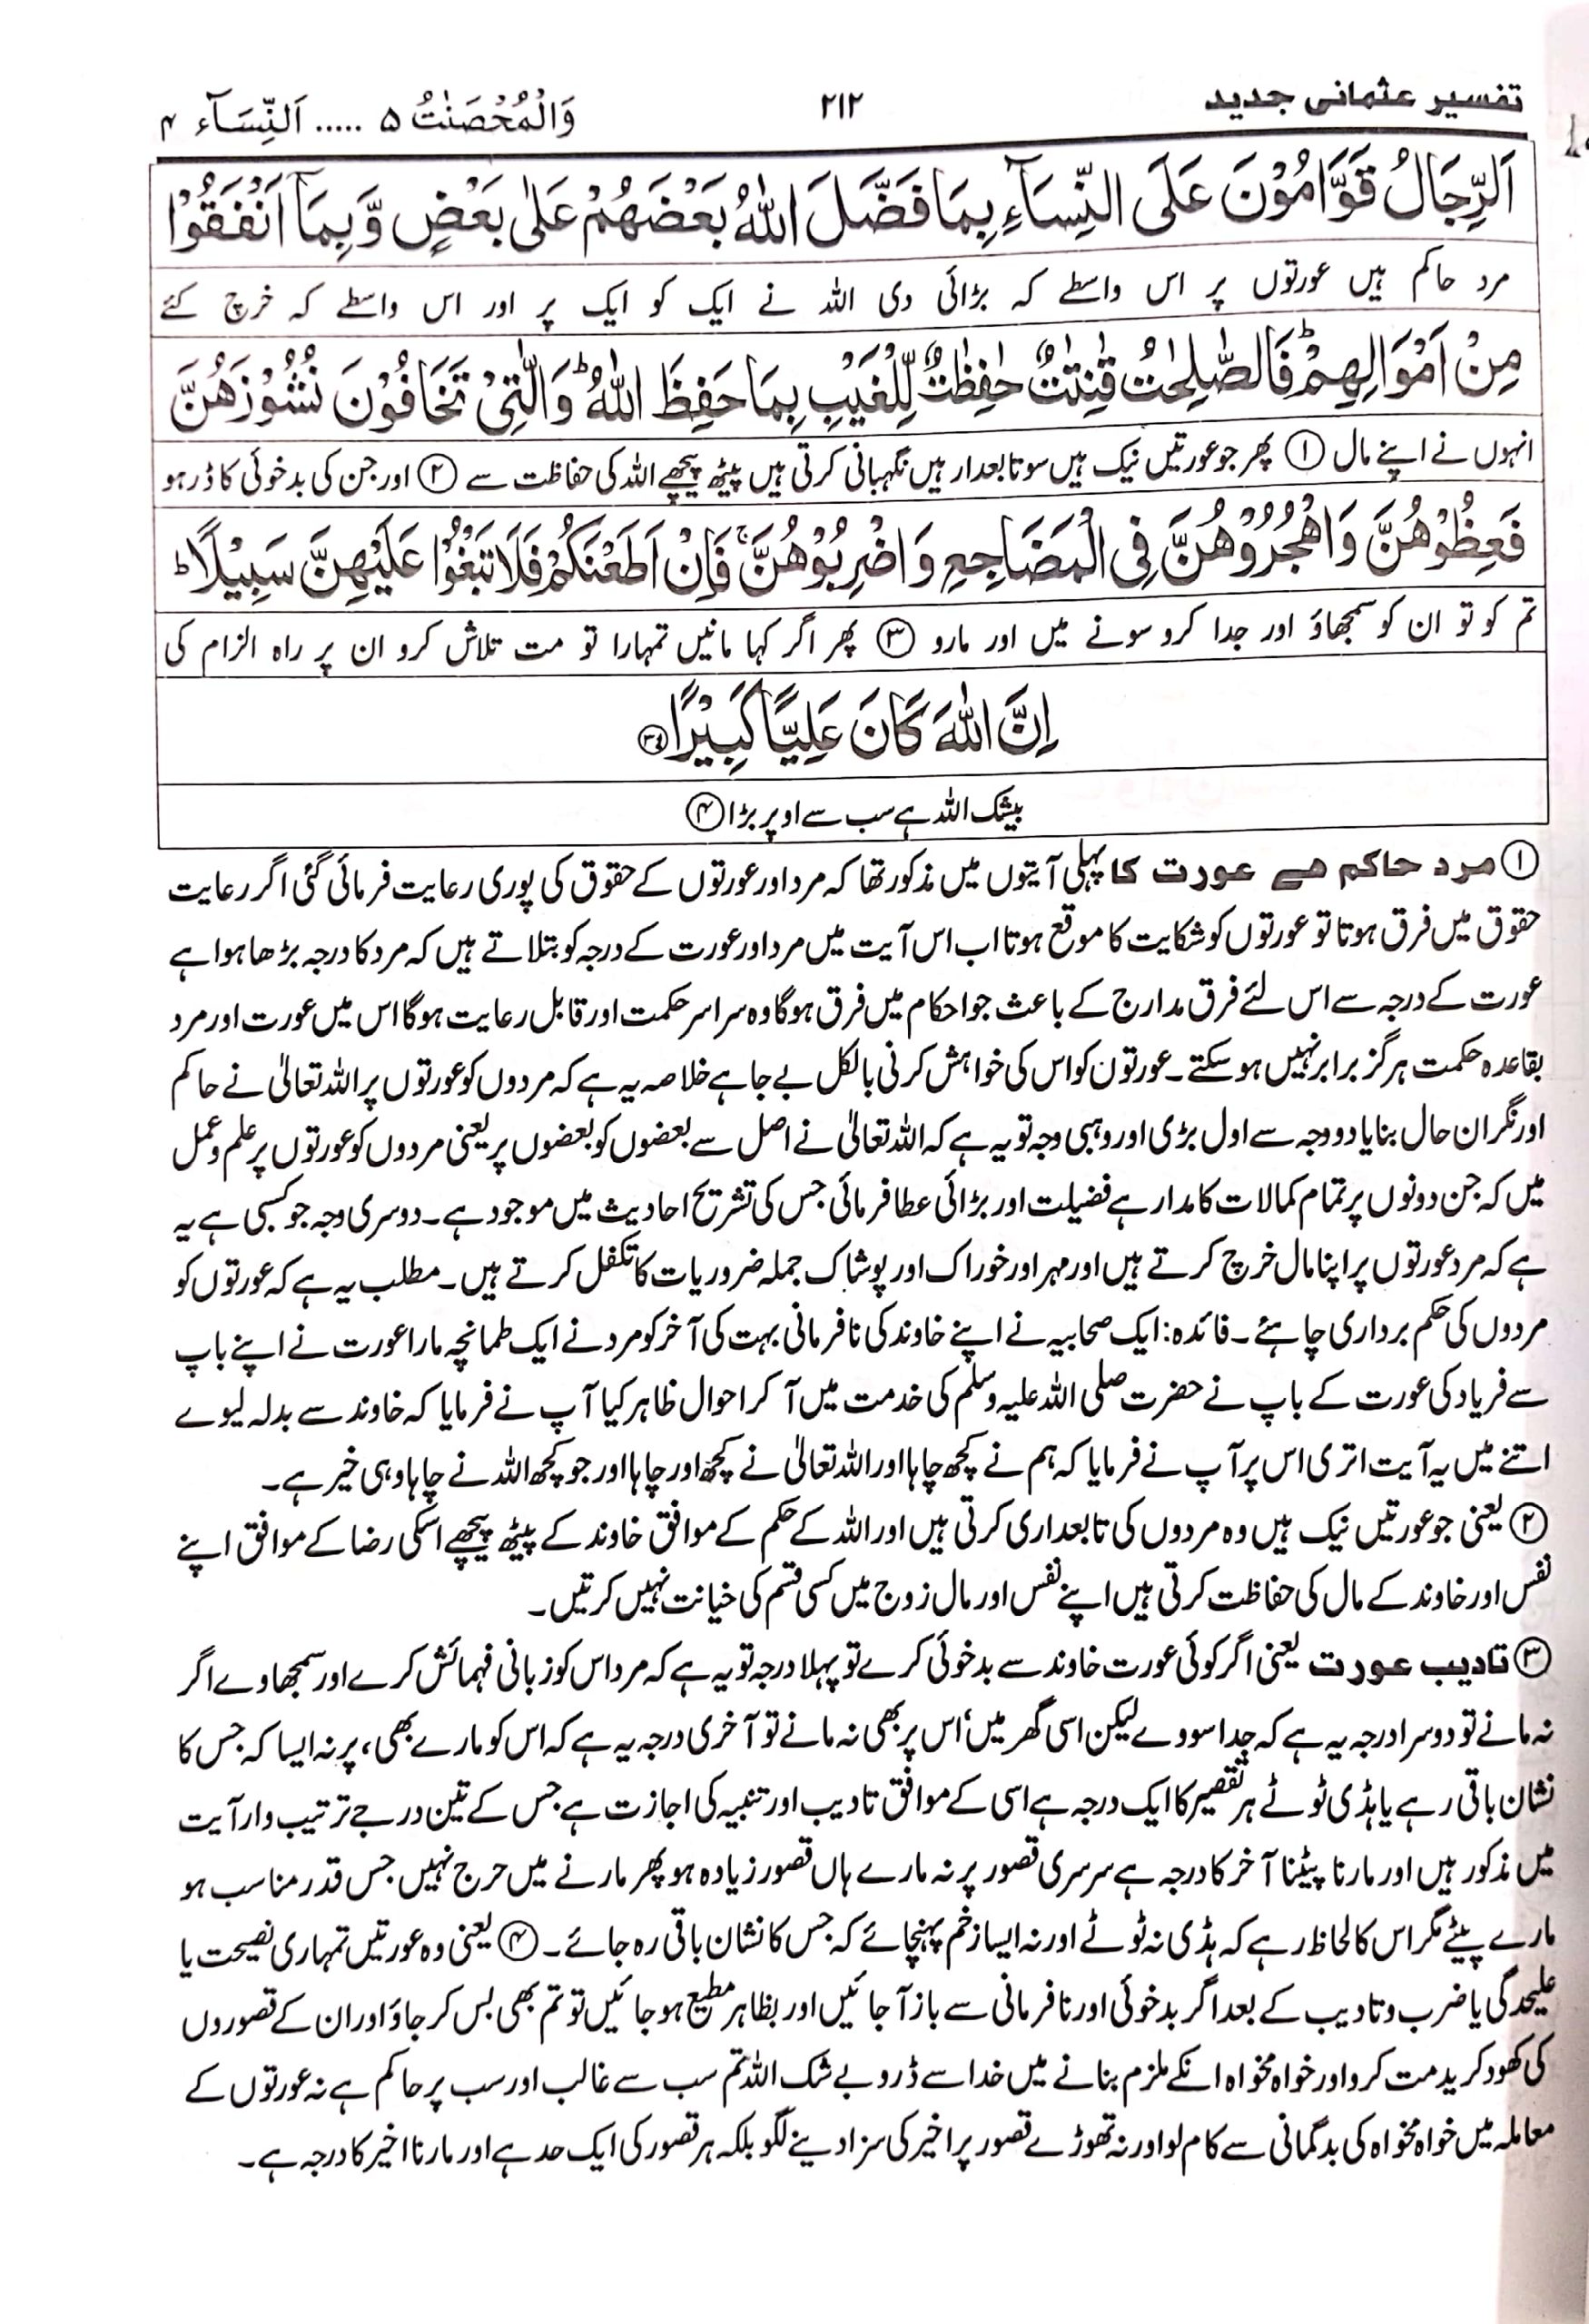 تفسیر عثمانی جدید ۲۱۲ وَالْمُحْصَنٰتُ ۵ ..... اَلنِّسَآء ۴
اَلرِّجَالُ قَوَّامُوْنَ عَلَی النِّسَآءِ بِمَا فَضَّلَ اللّٰهُ بَعْضَهُمْ عَلٰی بَعْضٍ وَّبِمَآ اَنْفَقُوْا
مرد حاکم ہیں عورتوں پر اس واسطے کہ بڑائی دی اللہ نے ایک کو ایک پر اور اس واسطے کہ خرچ کئے
مِنْ اَمْوَالِهِمْ ؕ فَالصّٰلِحٰتُ قٰنِتٰتٌ حٰفِظٰتٌ لِّلْغَیْبِ بِمَا حَفِظَ اللّٰهُ ؕ وَالّٰتِیْ تَخَافُوْنَ نُشُوْزَهُنَّ
انہوں نے اپنے مال ① پھر جو عورتیں نیک ہیں سو تابعدار ہیں نگہبانی کرتی ہیں پیٹھ پیچھے اللہ کی حفاظت سے ② اور جن کی بدخوئی کا ڈر ہو
فَعِظُوْهُنَّ وَاهْجُرُوْهُنَّ فِی الْمَضَاجِعِ وَاضْرِبُوْهُنَّ ۚ فَاِنْ اَطَعْنَكُمْ فَلَا تَبْغُوْا عَلَیْهِنَّ سَبِیْلًا ؕ
تم کو تو ان کو سمجھاؤ اور جدا کرو سونے میں اور مارو ③ پھر اگر کہا مانیں تمہارا تو مت تلاش کرو ان پر راہ الزام کی
اِنَّ اللّٰهَ كَانَ عَلِیًّا كَبِیْرًا ۝۳۴
بیشک اللہ ہے سب سے اوپر بڑا ④
① مرد حاکم ہے عورت کا پہلی آیتوں میں مذکور تھا کہ مرد اور عورتوں کے حقوق کی پوری رعایت فرمائی گئی اگر رعایت
حقوق میں فرق ہوتا تو عورتوں کو شکایت کا موقع ہوتا اب اس آیت میں مرد اور عورت کے درجہ کو بتلاتے ہیں کہ مرد کا درجہ بڑھا ہوا ہے
عورت کے درجہ سے اس لئے فرق مدارج کے باعث جو احکام میں فرق ہوگا وہ سراسر حکمت اور قابل رعایت ہوگا اس میں عورت اور مرد
بقاعدہ حکمت ہرگز برابر نہیں ہو سکتے۔ عورتوں کو اس کی خواہش کرنی بالکل بے جا ہے خلاصہ یہ ہے کہ مردوں کو عورتوں پر اللہ تعالیٰ نے حاکم
اور نگران حال بنایا دو وجہ سے اول بڑی اور وہبی وجہ تو یہ ہے کہ اللہ تعالیٰ نے اصل سے بعضوں کو بعضوں پر یعنی مردوں کو عورتوں پر علم و عمل
میں کہ جن دونوں پر تمام کمالات کا مدار ہے فضیلت اور بڑائی عطا فرمائی جس کی تشریح احادیث میں موجود ہے۔ دوسری وجہ جو کسبی ہے یہ
ہے کہ مرد عورتوں پر اپنا مال خرچ کرتے ہیں اور مہر اور خوراک اور پوشاک جملہ ضروریات کا تکفل کرتے ہیں۔ مطلب یہ ہے کہ عورتوں کو
مردوں کی حکم برداری چاہئے۔ فائدہ: ایک صحابیہ نے اپنے خاوند کی نافرمانی بہت کی آخر کو مرد نے ایک طمانچہ مارا عورت نے اپنے باپ
سے فریاد کی عورت کے باپ نے حضرت صلی اللہ علیہ وسلم کی خدمت میں آ کر احوال ظاہر کیا آپ نے فرمایا کہ خاوند سے بدلہ لیوے
اتنے میں یہ آیت اتری اس پر آپ نے فرمایا کہ ہم نے کچھ چاہا اور اللہ تعالیٰ نے کچھ اور چاہا اور جو کچھ اللہ نے چاہا وہی خیر ہے۔
② یعنی جو عورتیں نیک ہیں وہ مردوں کی تابعداری کرتی ہیں اور اللہ کے حکم کے موافق خاوند کے پیٹھ پیچھے اسکی رضا کے موافق اپنے
نفس اور خاوند کے مال کی حفاظت کرتی ہیں اپنے نفس اور مال زوج میں کسی قسم کی خیانت نہیں کرتیں۔
③ تادیب عورت یعنی اگر کوئی عورت خاوند سے بدخوئی کرے تو پہلا درجہ تو یہ ہے کہ مرد اس کو زبانی فہمائش کرے اور سمجھاوے اگر
نہ مانے تو دوسرا درجہ یہ ہے کہ جدا سووے لیکن اسی گھر میں، اس پر بھی نہ مانے تو آخری درجہ یہ ہے کہ اس کو مارے بھی، پر نہ ایسا کہ جس کا
نشان باقی رہے یا ہڈی ٹوٹے ہر تقصیر کا ایک درجہ ہے اسی کے موافق تادیب اور تنبیہ کی اجازت ہے جس کے تین درجے ترتیب وار آیت
میں مذکور ہیں اور مارنا پیٹنا آخر کا درجہ ہے سرسری قصور پر نہ مارے ہاں قصور زیادہ ہو پھر مارنے میں حرج نہیں جس قدر مناسب ہو
مارے پیٹے مگر اس کا لحاظ رہے کہ ہڈی نہ ٹوٹے اور نہ ایسا زخم پہنچائے کہ جس کا نشان باقی رہ جائے۔ ④ یعنی وہ عورتیں تمہاری نصیحت یا
علیحدگی یا ضرب و تادیب کے بعد اگر بدخوئی اور نافرمانی سے باز آ جائیں اور بظاہر مطیع ہو جائیں تو تم بھی بس کر جاؤ اور ان کے قصوروں
کی کھود کرید مت کرو اور خواہ مخواہ انکے ملزم بنانے میں خدا سے ڈرو بے شک اللہ تم سب سے غالب اور سب پر حاکم ہے نہ عورتوں کے
معاملہ میں خواہ مخواہ کی بدگمانی سے کام لو اور نہ تھوڑے قصور پر اخیر کی سزا دینے لگو بلکہ ہر قصور کی ایک حد ہے اور مارنا اخیر کا درجہ ہے۔